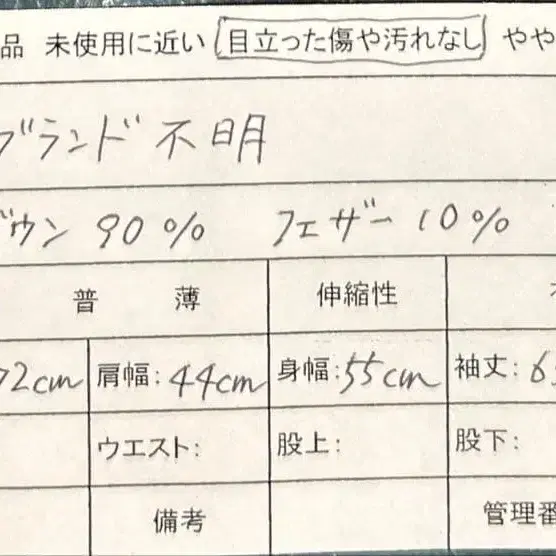 品 未使用に近い 目立った傷や汚れなし やや
ブランド不明
ダウン 90% フェザー 10%
普 薄 伸縮性
72cm 肩幅:44cm 身幅:55cm 袖丈:6
ウエスト: 股上: 股下:
備考 管理番